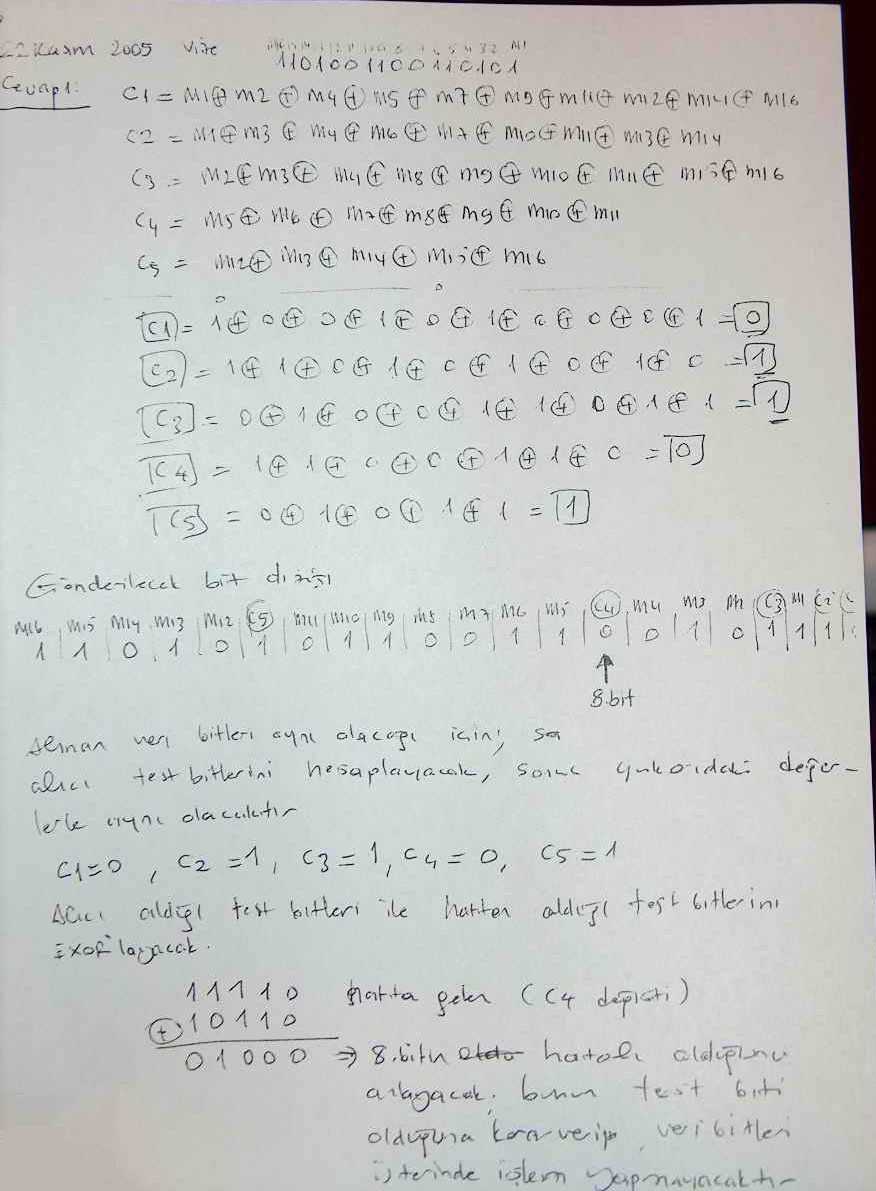 22 Kasım 2005 Vize
1101001100110101
Cevap 1:
C1 = M1 ⊕ M2 ⊕ M4 ⊕ M5 ⊕ M7 ⊕ M9 ⊕ M11 ⊕ M12 ⊕ M14 ⊕ M16
C2 = M1 ⊕ M3 ⊕ M4 ⊕ M6 ⊕ M7 ⊕ M10 ⊕ M11 ⊕ M13 ⊕ M14
C3 = M2 ⊕ M3 ⊕ M4 ⊕ M8 ⊕ M9 ⊕ M10 ⊕ M11 ⊕ M15 ⊕ M16
C4 = M5 ⊕ M6 ⊕ M7 ⊕ M8 ⊕ M9 ⊕ M10 ⊕ M11
C5 = M12 ⊕ M13 ⊕ M14 ⊕ M15 ⊕ M16
C1 = 1 ⊕ 0 ⊕ 0 ⊕ 1 ⊕ 0 ⊕ 1 ⊕ 0 ⊕ 0 ⊕ 0 ⊕ 1 = 0
C2 = 1 ⊕ 1 ⊕ 0 ⊕ 1 ⊕ 0 ⊕ 1 ⊕ 0 ⊕ 1 ⊕ 0 = 1
C3 = 0 ⊕ 1 ⊕ 0 ⊕ 0 ⊕ 1 ⊕ 1 ⊕ 0 ⊕ 1 ⊕ 1 = 1
C4 = 1 ⊕ 1 ⊕ 0 ⊕ 0 ⊕ 1 ⊕ 1 ⊕ 0 = 0
C5 = 0 ⊕ 1 ⊕ 0 ⊕ 1 ⊕ 1 = 1
Gönderilecek bit dizisi
M16 M15 M14 M13 M12 C5 M11 M10 M9 M8 M7 M6 M5 C4 M4 M3 M2 C3 M1 C2 C
1 1 0 1 0 1 0 1 1 0 0 1 1 0 0 1 0 1 1 1
8.bit
Alınan veri bitleri aynı olacağı için,
alıcı test bitlerini hesaplayacak, sonuç yukarıdaki değer-
lerle aynı olacaktır
C1=0, C2=1, C3=1, C4=0, C5=1
Alıcı aldığı test bitleri ile hattan aldığı test bitlerini
EXOR'layacak.
11110 hatta gelen (C4 değişti)
⊕ 10110
01000 ⇒ 8.bitin hatalı aldığını
anlayacak, bunun test biti
olduğuna karar verip veri bitleri
üzerinde işlem yapmayacaktır